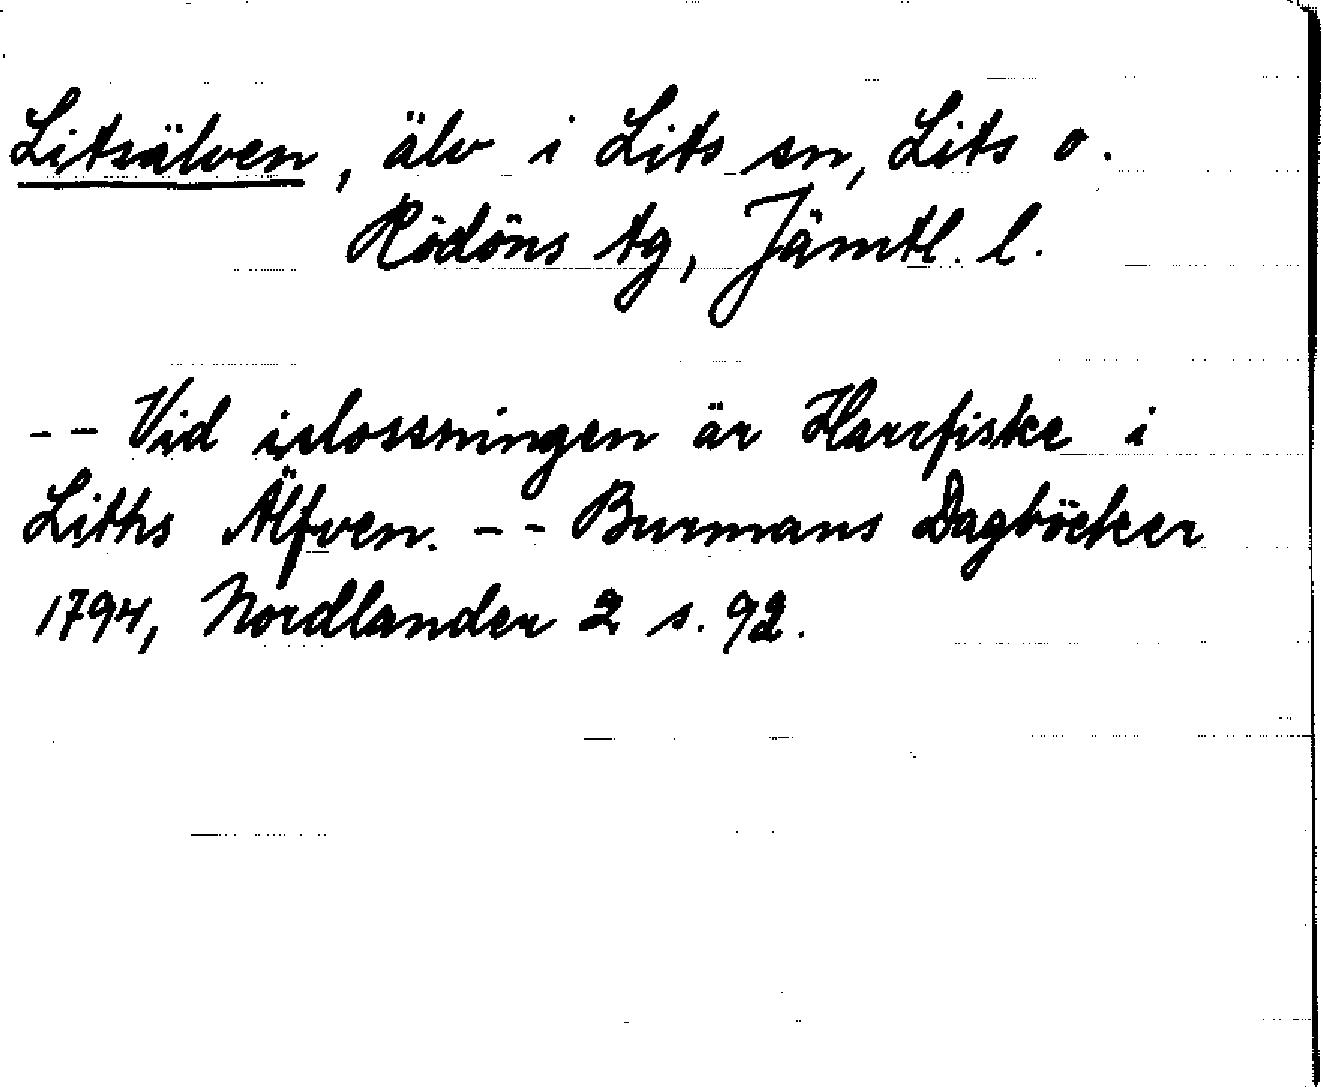 Litsälven, älv i Lits sn, Lits o.
Rödöns tg, Jämtl. l.
-- Vid islossningen är Harrfiske i
Liths Älfven. -- Burmans Dagböcker
1794, Nordlander 2 s. 92.